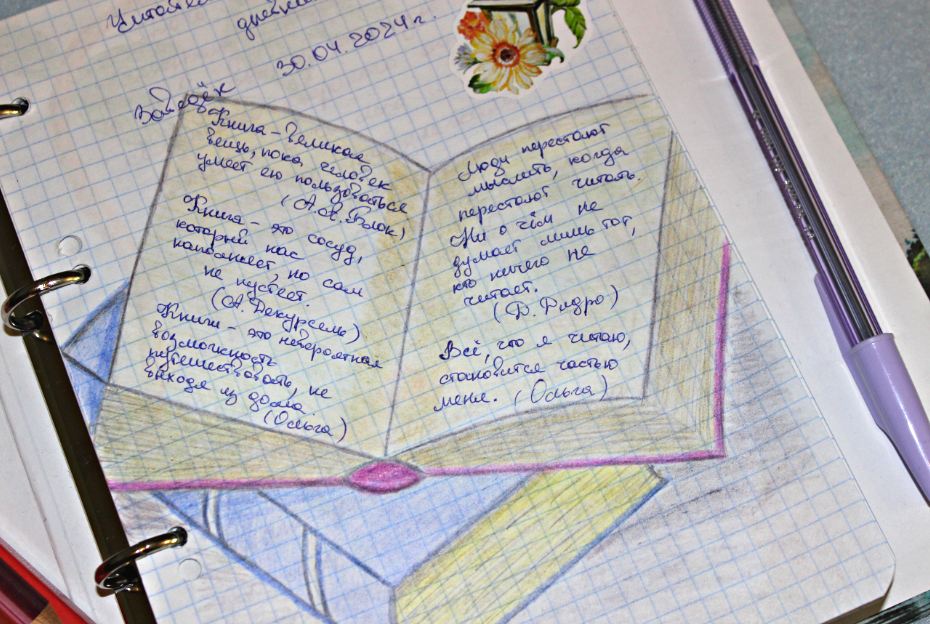 30.04.2024г.
Книга – великая
вещь, пока человек
умеет ею пользоваться
(А.А. Блок)
Книга – это сосуд,
который нас
наполняет, но сам
не пустеет.
(А. Декурсель)
Книги – это невероятная
возможность
путешествовать, не
выходя из дома.
(Ольга)
Люди перестают
мыслить, когда
перестают читать.
Ни о чём не
думает лишь тот,
кто ничего не
читает.
(Д. Дидро)
Всё, что я читаю,
становится частью
меня. (Ольга)